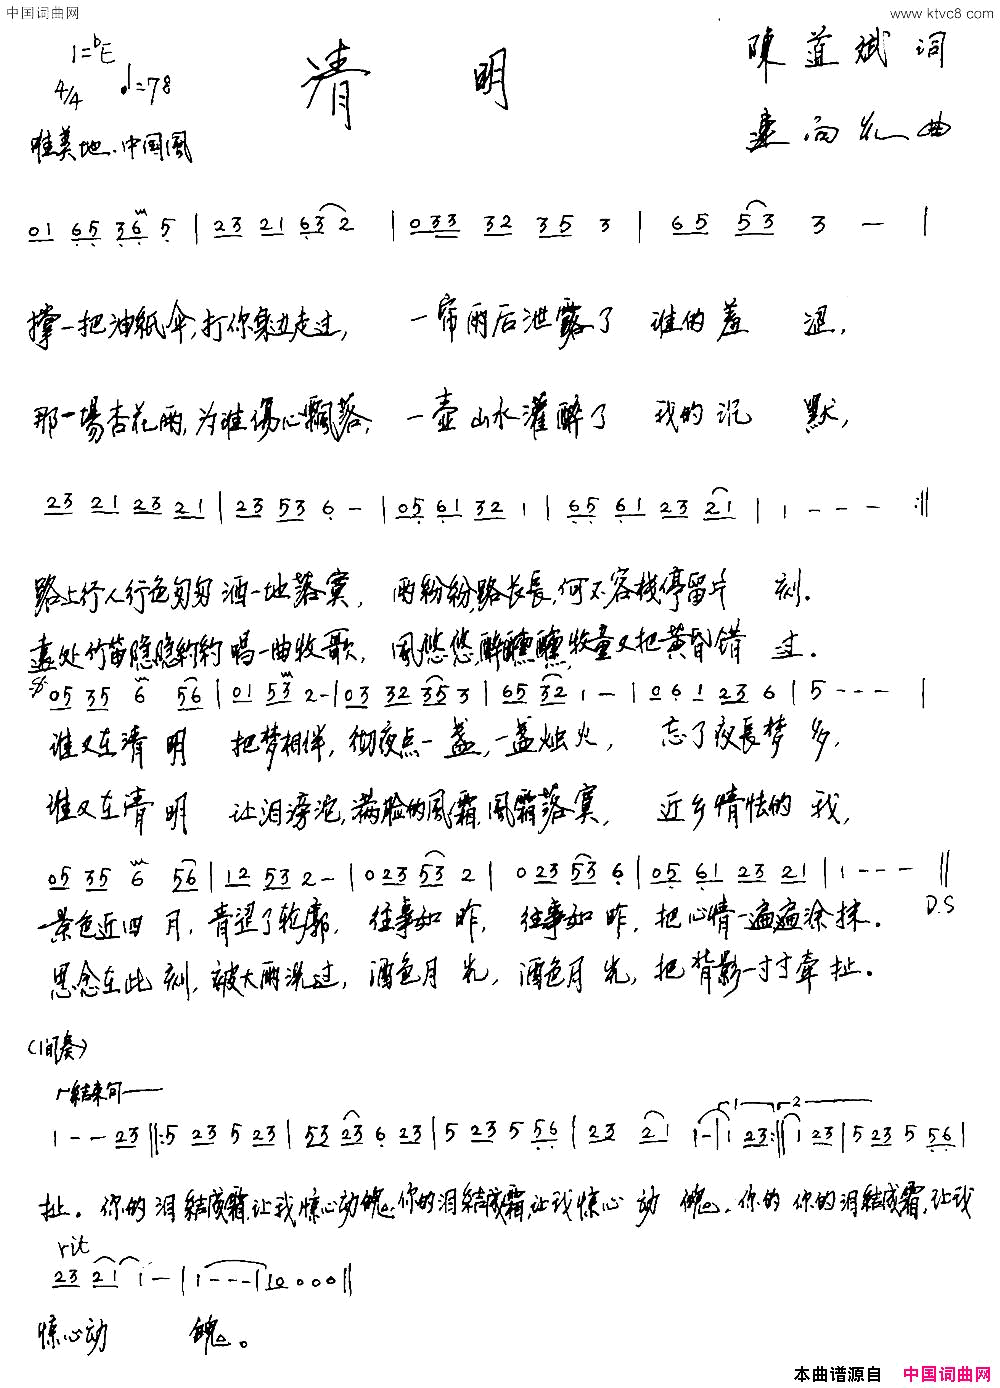 中国词曲网 www.ktvc8.com
1=♭E
4/4 ♩=78
清 明
陳益斌 词
向 曲
唯美地、中国風
01 65 36 5 | 23 21 63 2 | 033 32 35 3 | 65 53 3 — |
撑一把油紙伞,打你身边走过, 一帘雨后泄露了 谁的羞 涩,
那一場杏花雨,为谁傷心飄落, 一壶山水灌醉了 我的沉 默,
23 21 23 21 | 23 53 6 — | 05 61 32 1 | 65 61 23 21 | 1 - - - :||
路上行人行色匆匆洒一地落寞, 雨紛紛,路长長,何不客棧停留片 刻.
远处竹笛隐隐約約唱一曲牧歌, 風悠悠醉醺醺,牧童又把黄昏错 过.
05 35 6 56 | 01 53 2- | 03 32 35 3 | 65 32 1 — | 06 1 23 6 | 5 - - - |
谁又在清 明 把梦相伴, 彻夜点一盏,一盏烛火, 忘了夜長梦 多,
谁又在清 明 让泪滂沱,满脸的風霜,風霜落寞, 近乡情怯的 我,
05 35 6 56 | 12 53 2- | 023 53 2 | 023 53 6 | 05 61 23 21 | 1 - - - ||
D.S
一景色近四 月, 青涩了轮廓, 往事如 昨, 往事如 昨, 把心情一遍遍涂抹.
思念在此 刻, 被大雨洗过, 酒色月 光, 酒色月 光, 把背影一寸寸牵 扯.
(间奏)
结束句
1 - - 23 ||: 5 23 5 23 | 53 23 6 23 | 5 23 5 56 | 23 21 1- | 1 23 :|| 1 23 | 5 23 5 56 |
扯. 你的泪結成霜,让我惊心动魄,你的泪結成霜,让我惊心 动 魄. 你的 你的泪結成霜,让我
rit
23 21 1 — | 1 - - - | 10 0 0 0 ||
惊心动 魄。
本曲谱源自 中国词曲网